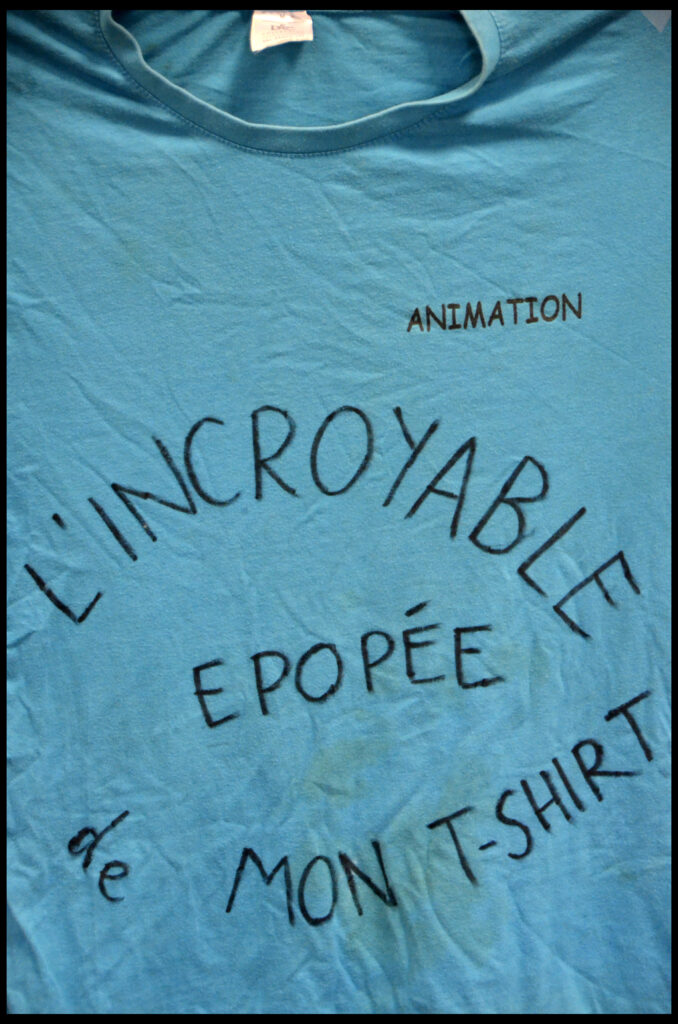 ANIMATION
L'INCROYABLE
EPOPÉE
de MON T-SHIRT